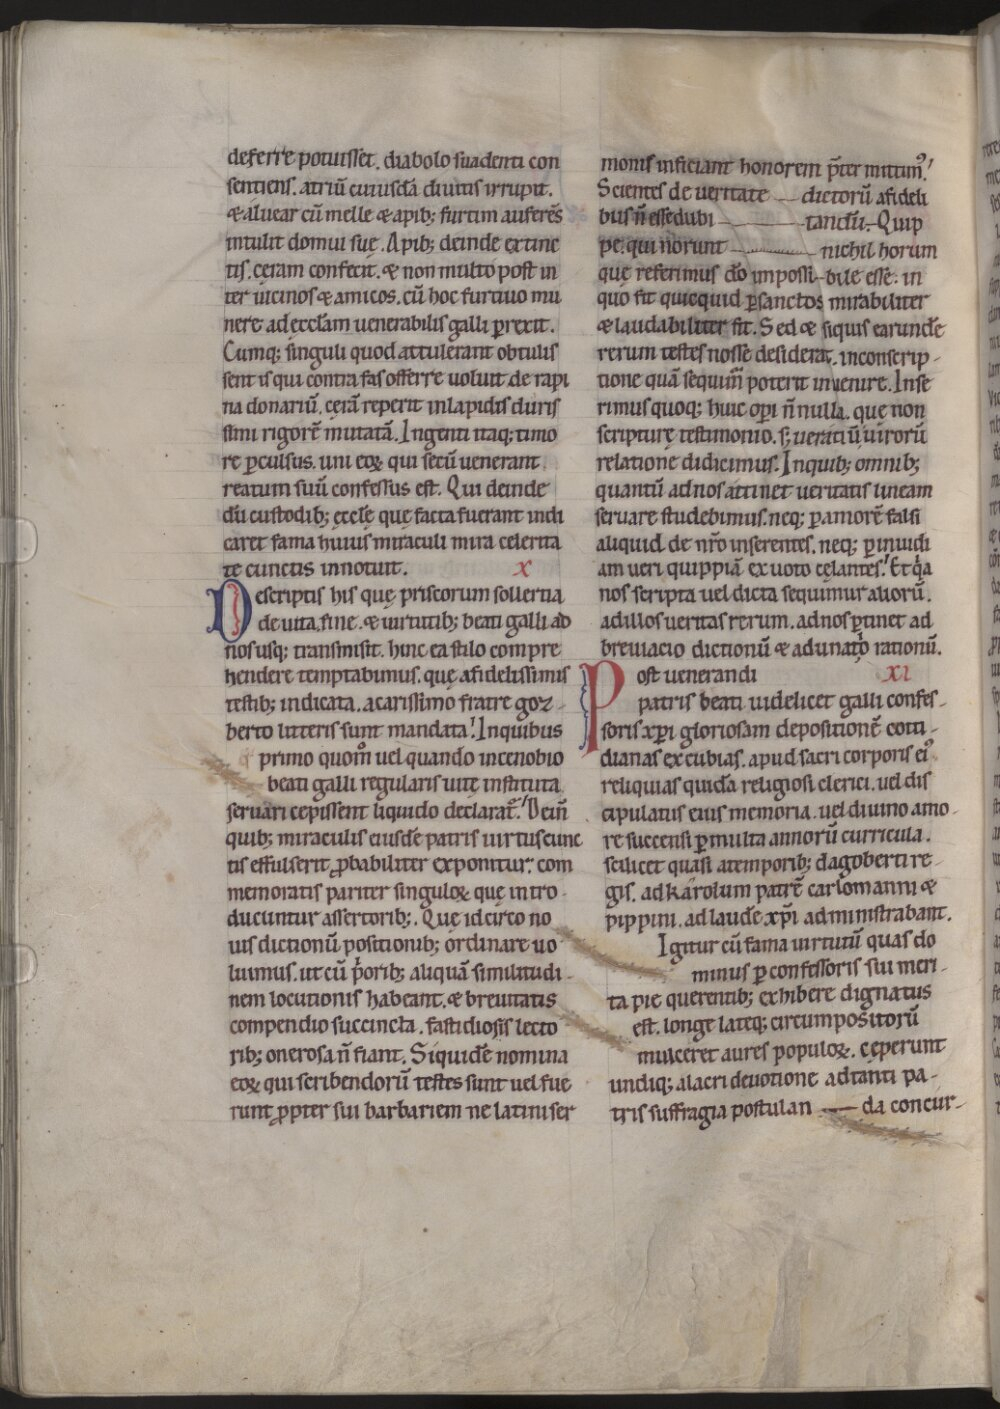 deferre potuisset. diabolo suadenti con
sentiens. atriū cuiusdā diuitis irrupit.
& aluear cū melle & apib; furtim auferēs
intulit domui suę. Apib; deinde extinc
tis. ceram confecit. & non multo post in
ter uicinos & amicos. cū hoc furtiuo mu
nere ad eccłam uenerabilis galli ꝑrexit.
Cumq; singuli quod attulerant obtulis
sent is qui contra fas offerre uoluit de rapi
na donariū. cerā reperit in lapidis duris
simi rigorē mutatā. Ingenti itaq; timo
re ꝑculsus. uni eoꝝ qui secū uenerant
reatum suū confessus est. Qui deinde
dū custodib; ęcclę que facta fuerant indi
caret fama huius miraculi mira celerita
te cunctis innotuit. x
Descriptis his quę priscorum sollertia
de uita. fine. & uirtutib; beati galli ad
nos usq; transmisit. hinc ea stilo compre
hendere temptabimus. quę a fidelissimis
testib; indicata. a carissimo fratre goz
berto litteris sunt mandata! In quibus
primo quom̄ uel quando in cenobio
beati galli regularis uitę instituta
seruari cepissent liquido declarat̄! Dein̄
quib; miraculis eiusdē patris uirtus cunc
tis effulserit ꝓbabiliter exponitur. com
memoratis pariter singuloꝝ quę intro
ducuntur assertorib;. Quę idcirco no
uis dictionū positionib; ordinare uo
luimus. ut cū p̓orib; aliquā similitudi
nem locutionis habeant. & breuitatis
compendio succincta. fastidiosis lecto
rib; onerosa n̄ fiant. Siquidē nomina
eoꝝ qui scribendorū testes sunt uel fue
runt ꝓpter sui barbariem ne latini ser
monis inficiant honorem p̄ter mittim᾽!
Scientes de ueritate dictorū a fideli
bus n̄ esse dubi tandū. Quip
pe. qui norunt nichil horum
quę referimus d̄o impossi bile esse. in
quo fit quicquid ꝑ sanctos mirabiliter
& laudabiliter fit. Sed & siquis earundē
rerum testes nosse desiderat. in conscrip
tione quā sequim̄ poterit inuenire. Inse
rimus quoq; huic operi n̄ nulla. que non
scripturę testimonio. s; ueratiū uirorū
relatione didicimus. In quib; omnib;
quantū ad nos attinet ueritatis lineam
seruare studebimus. neq; ꝑ amorē falsi
aliquid de nr̄o inserentes. neq; ꝑ inuidi
am ueri quippiā ex uoto celantes! Et q̓a
nos scripta uel dicta sequimur aliorū.
ad illos ueritas rerum. ad nos ꝑtinet ad
breuiacio dictionū & adunatio rationū.
Post uenerandi xi
patris beati uidelicet galli confes
soris xp̄i gloriosam depositionē coti
dianas excubias. apud sacri corporis ei᾽
reliquias quidā religiosi clerici. uel dis
cipulatus eius memoria. uel diuino amo
re succensi ꝑ multa annorū curricula.
scilicet quasi a temporib; dagoberti re
gis. ad karolum patrē carlomanni &
pippini. ad laudē xp̄i administrabant.
Igitur cū fama uirtutū quas do
minus ꝑ confessoris sui meri
ta pie querentib; exhibere dignatus
est. longe lateq; circumpositorū
mulceret aures populoꝝ. ceperunt
undiq; alacri deuotione ad tanti pa
tris suffragia postulan da concur